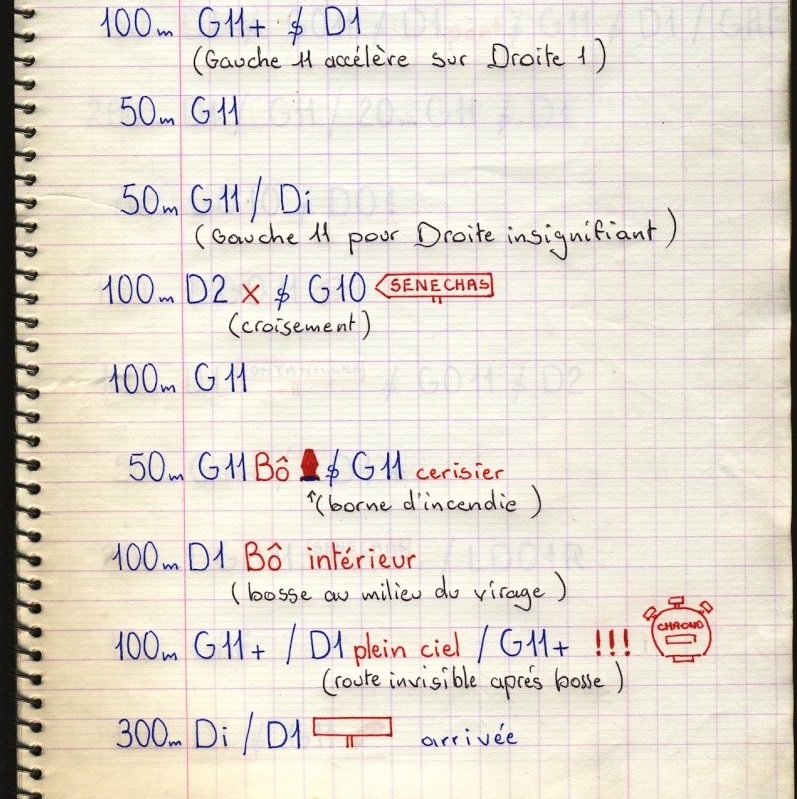 100m G11+ $ D1
(Gauche 11 accélère sur Droite 1)
50m G11
50m G11 / Di
(Gauche 11 pour Droite insignifiant)
100m D2 x $ G10 SENECHAS
(croisement)
100m G11
50m G11 Bô $ G11 cerisier
↑(borne d'incendie)
100m D1 Bô intérieur
(bosse au milieu du virage)
100m G11+ / D1 plein ciel / G11+ !!! CHRONO
(route invisible aprés bosse)
300m Di / D1 arrivée